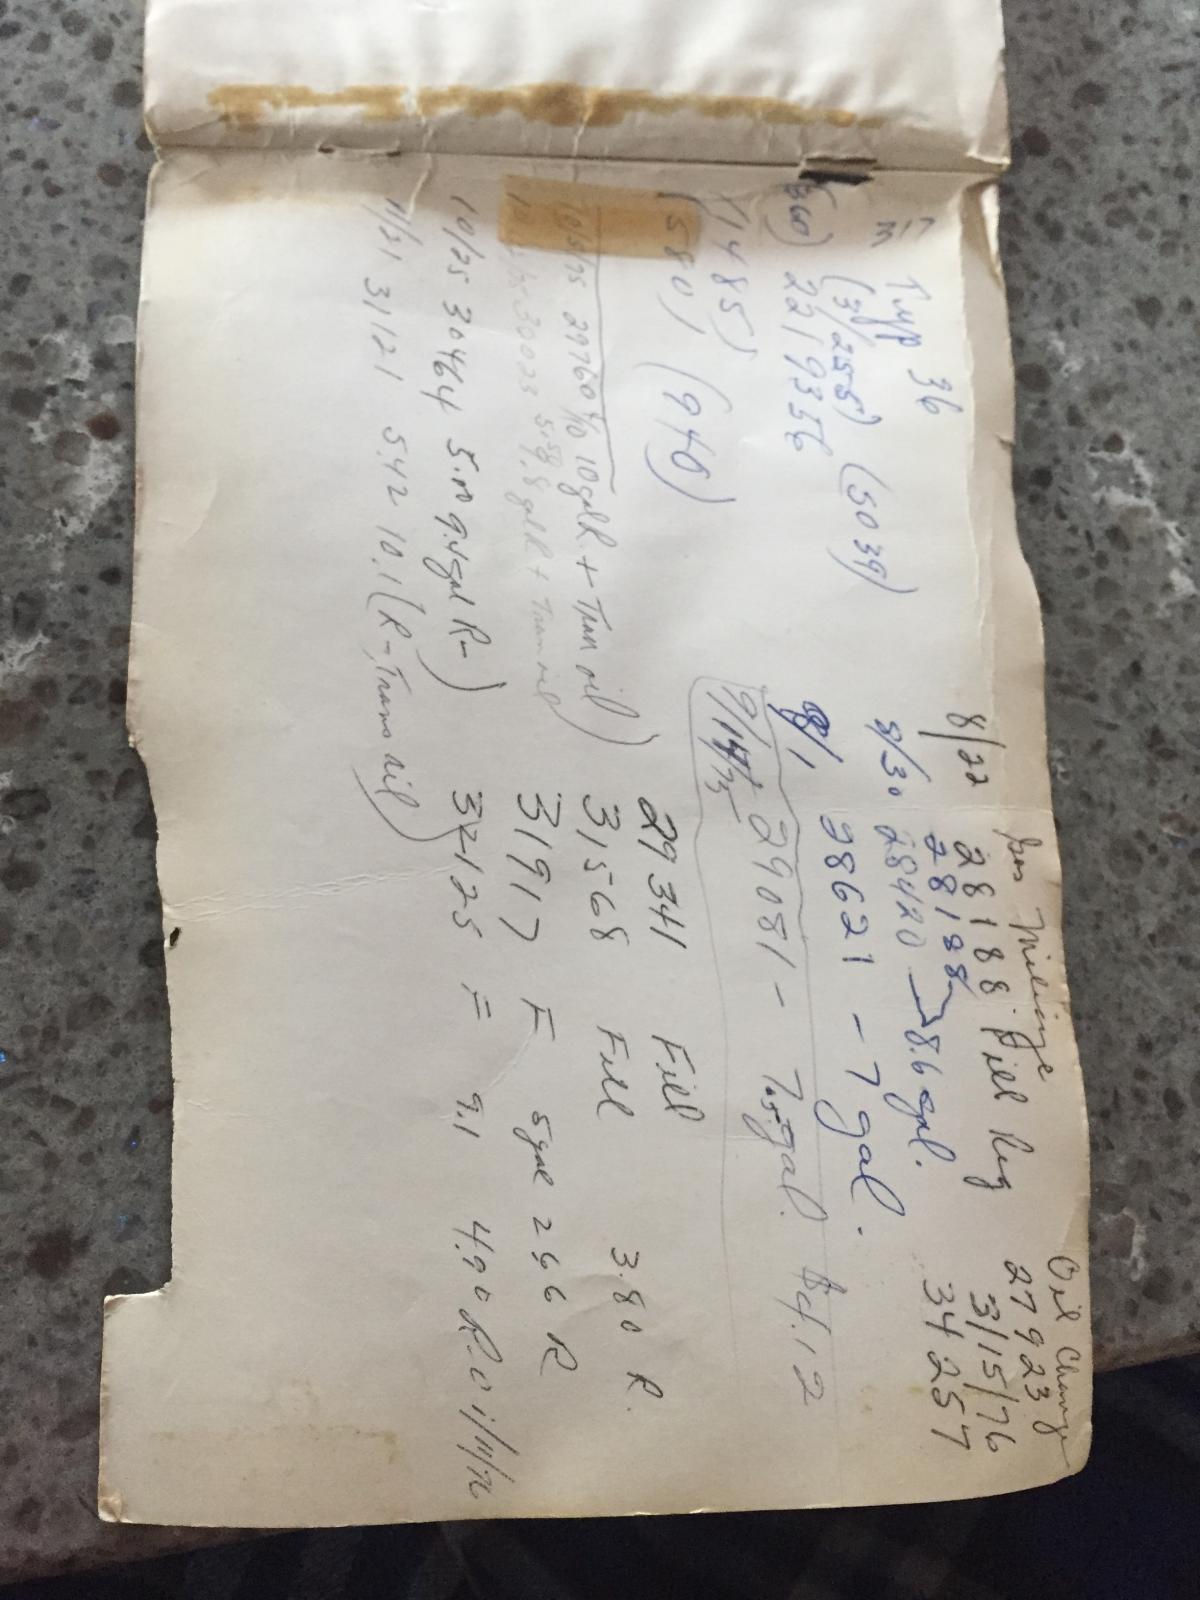 Gas Mileage
8/22 28188 Fill Reg
28188
8/30 28420 → 8.6 gal.
9/1 28621 - 7 gal.
9/14/75 29081 - 7.5 gal. $4.12
29341 Fill
31568 Fill 3.80 R.
31917 F 5 gal 2.66 R
32125 = 9.1 4.90 R. 1/11/76
Oil Change
27923
3/15/76
34257
Typ 36
(3/255) (5039)
2219356
(1485)
(580) (940)
10/5/75 29760 10 gal R. + Tran oil)
30023 9.8 gal R + Tran oil
10/25 30464 5.00 9.4 gal R-)
11/21 31121 5.42 10.1 (R-, Trans oil)